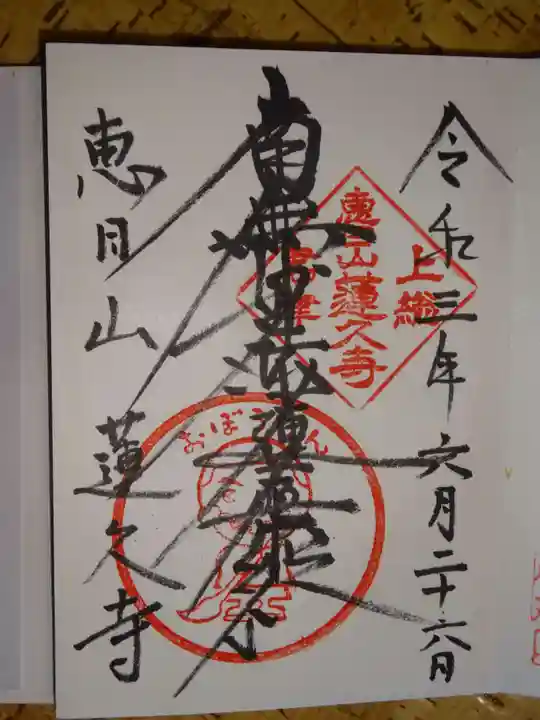 令和三年六月二十六日
上総
恵日山蓮久寺
南無妙法蓮華経
おぼうさん
恵日山
蓮久寺